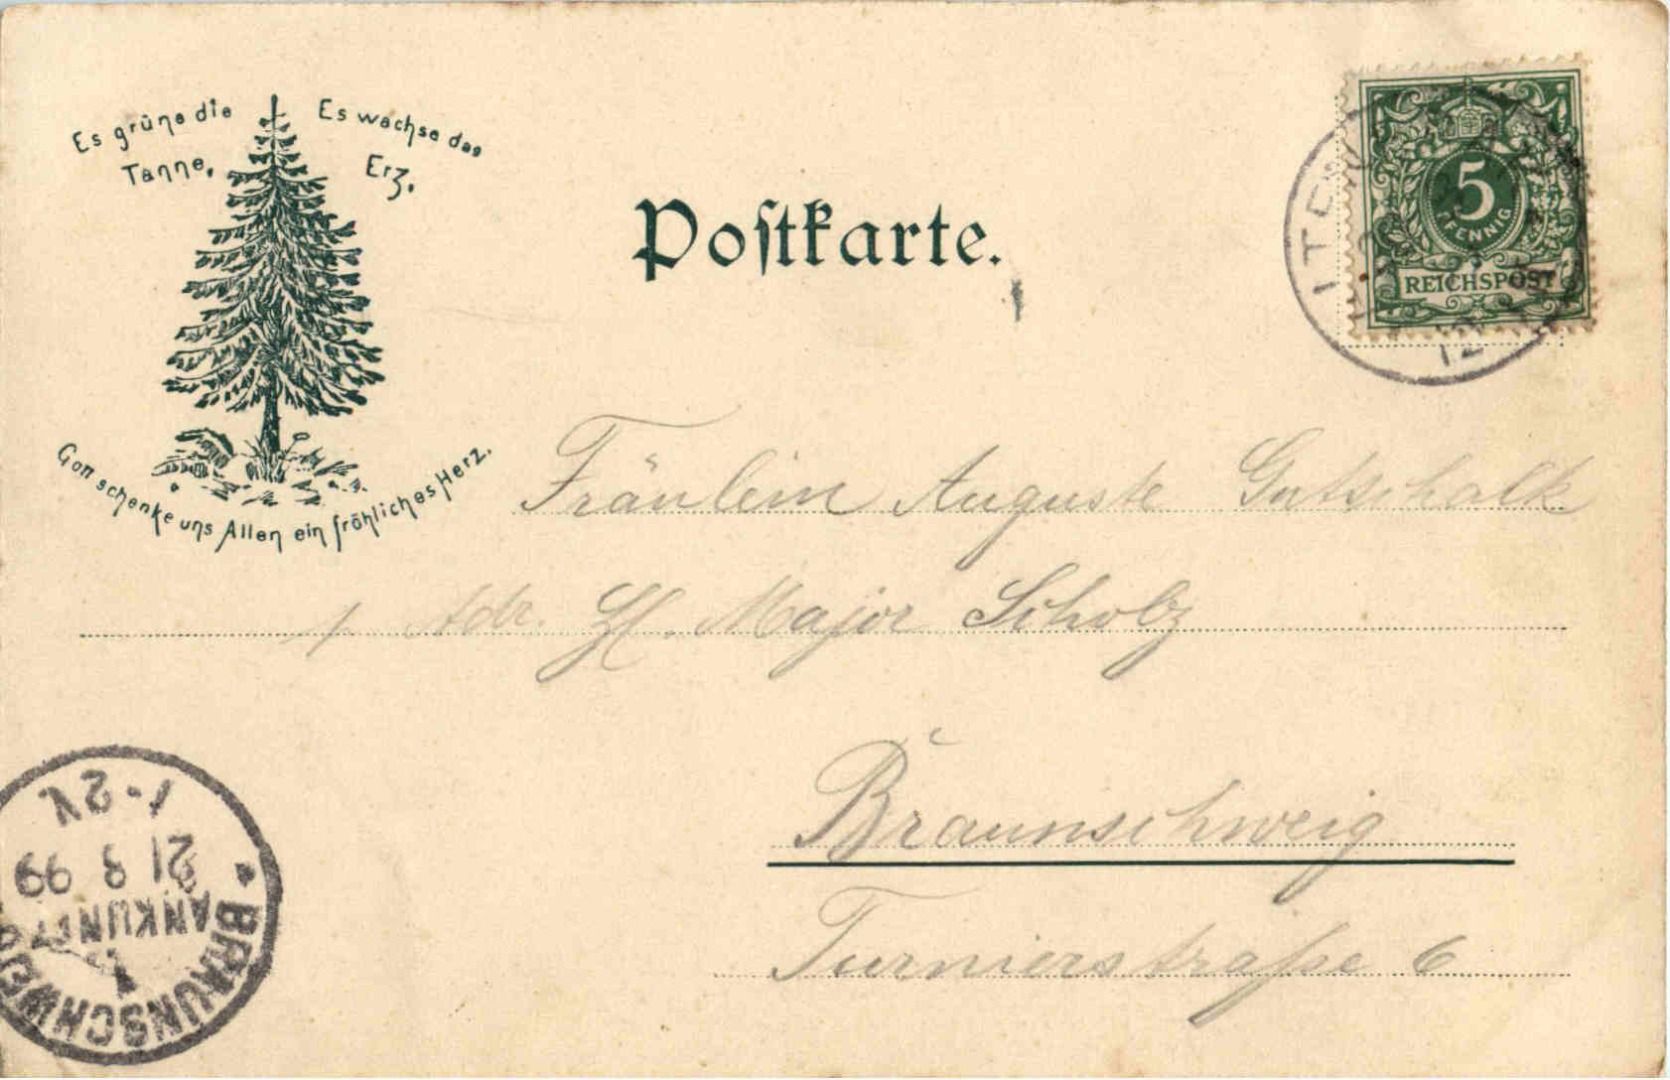 Es grüne die Tanne.
Es wachse das Erz.
Gott schenke uns Allen ein fröhliches Herz.
Postkarte.
5
PFENNIG
REICHSPOST
12
Fräulein Auguste Gutschalk
Adr. H. Major Scholz
Braunschweig
Turnierstraße 6
BRAUNSCHWEIG
1
ANKUNFT
21 8 99
1-2N.